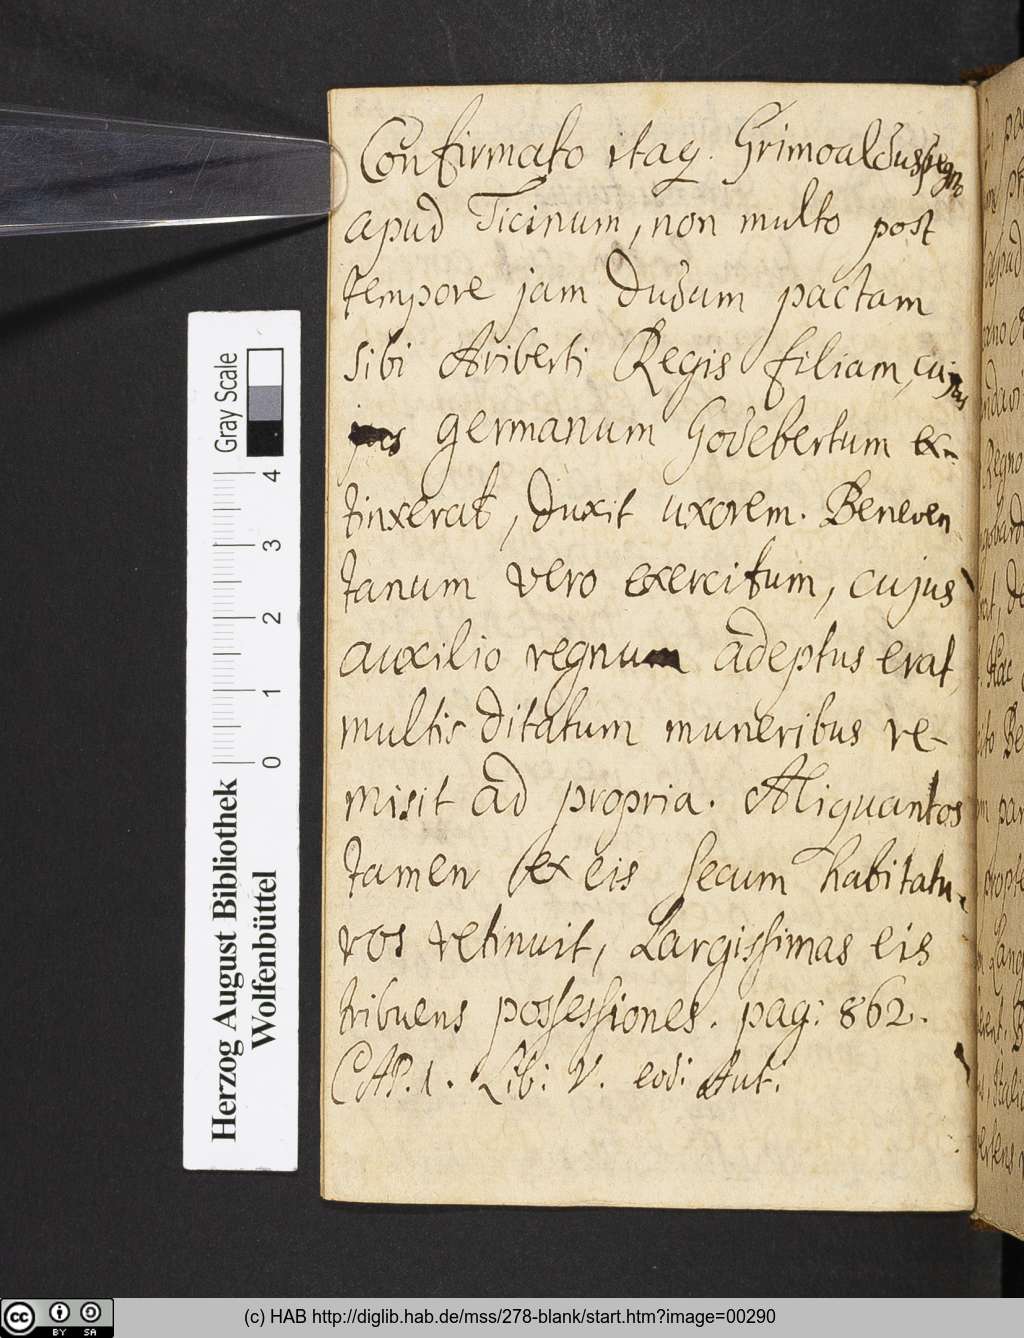 Confirmato itaq. Grimoaldus regno
apud Ticinum, non multo post
tempore jam dudum pactam
sibi Ariberti Regis filiam, cujus
germanum Godebertum ex-
tinxerat, duxit uxorem. Beneven
tanum vero exercitum, cujus
auxilio regnum adeptus erat,
multis ditatum muneribus re-
misit ad propria. Aliquantos
tamen ex eis secum habitatu-
ros retinuit, Largissimas eis
tribuens possessiones. pag: 862.
CAP. 1. Lib: V. eod: Aut:
Gray Scale
0 1 2 3 4
Herzog August Bibliothek
Wolfenbüttel
(c) HAB http://diglib.hab.de/mss/278-blank/start.htm?image=00290
cc BY SA